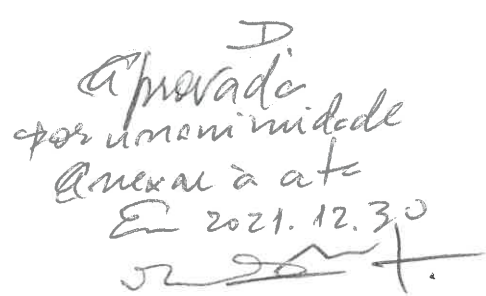 D
Aprovada
por unanimidade
Anexar à ata
Em 2021.12.30